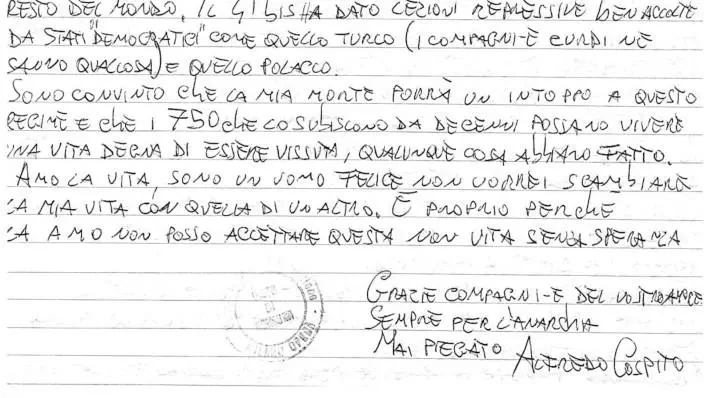 RESTO DEL MONDO. IL 41 BIS HA DATO LEZIONI REPRESSIVE BEN ACCOLTE
DA STATI "DEMOCRATICI" COME QUELLO TURCO (I COMPAGNI-E CURDI NE
SANNO QUALCOSA) E QUELLO POLACCO.
SONO CONVINTO CHE LA MIA MORTE PORRÀ UN INTOPPO A QUESTO
REGIME E CHE I 750 CHE LO SUBISCONO DA DECENNI POSSANO VIVERE
UNA VITA DEGNA DI ESSERE VISSUTA, QUALUNQUE COSA ABBIANO FATTO.
AMO LA VITA, SONO UN UOMO FELICE NON VORREI SCAMBIARE
LA MIA VITA CON QUELLA DI UN ALTRO. È PROPRIO PERCHÉ
LA AMO NON POSSO ACCETTARE QUESTA NON VITA SENZA SPERANZA
GRAZIE COMPAGNI-E DEL VOSTRO AMORE
SEMPRE PER L'ANARCHIA
MAI PIEGATO ALFREDO COSPITO
OPERA